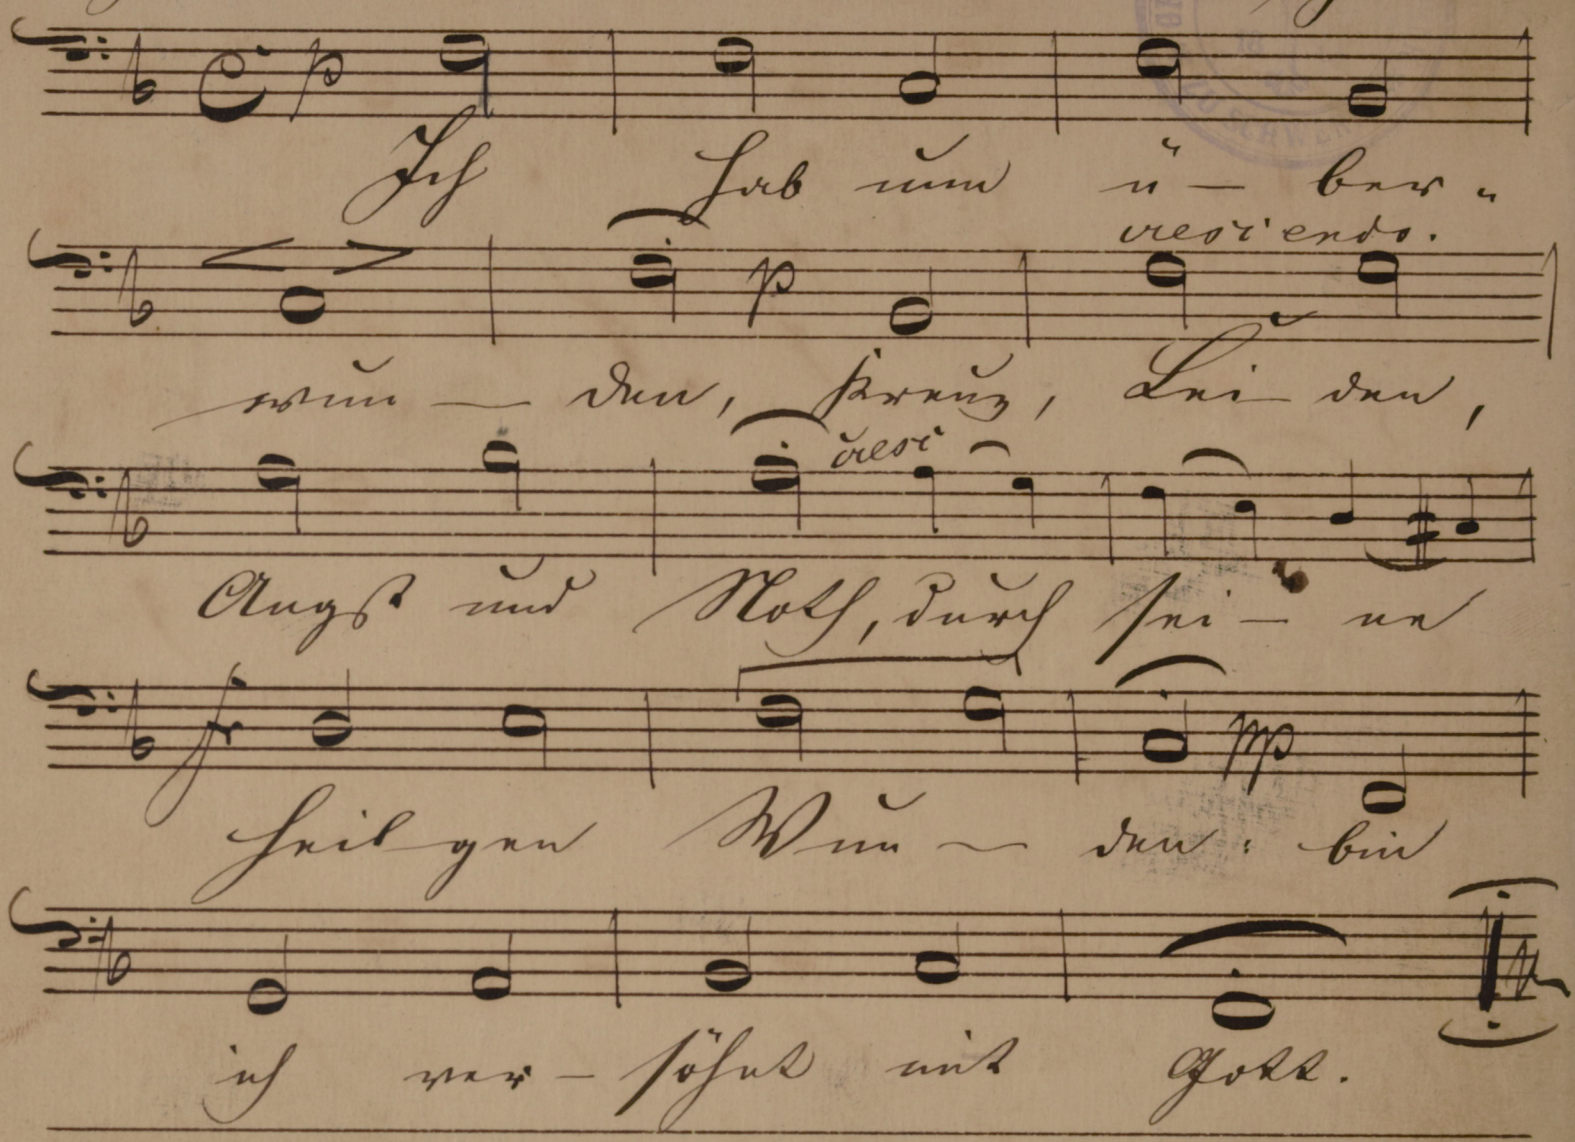 p
Ich hab nun ü – ber =
crescendo.
p
wun – den, Kreuz, Lei – den,
cresc
Angst und Noth, durch sei – ne
f
pp
heil – gen Wun – den: bin
ich ver – söhnt mit Gott.